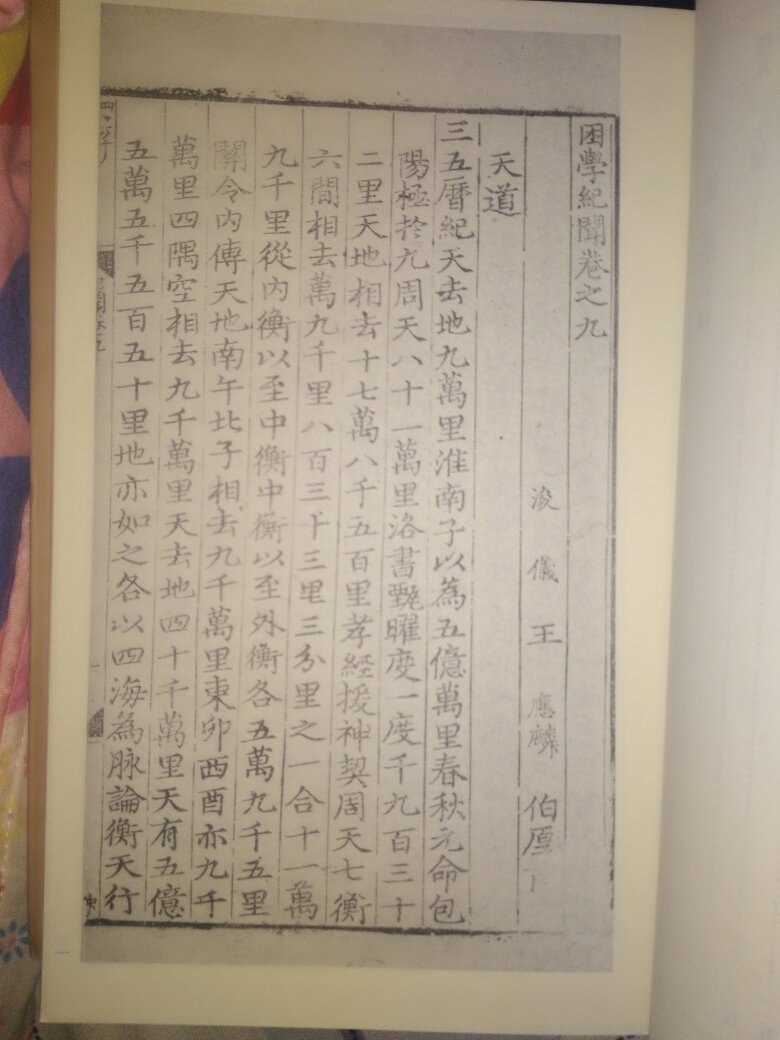 困學紀聞卷之九
浚儀王應麟伯厚
天道
三五曆紀天去地九萬里淮南子以為五億萬里春秋元命包
陽極於九周天八十一萬里洛書甄曜度一度千九百三十
二里天地相去十七萬八千五百里孝經援神契周天七衡
六間相去萬九千里八百三十三里三分里之一合十一萬
九千里從內衡以至中衡中衡以至外衡各五萬九千五里
關令內傳天地南午北子相去九千萬里東卯西酉亦九千
萬里四隅空相去九千萬里天去地四十千萬里天有五億
五萬五千五百五十里地亦如之各以四海為脉論衡天行